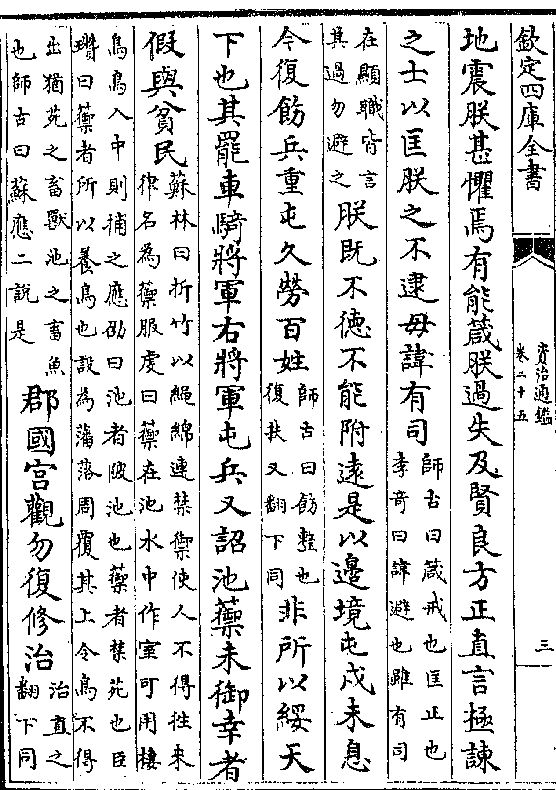 欽定四庫全書
資治通鑑
卷二十五
三
地震朕甚懼焉有能箴朕過失及賢良方正直言極諫
之士以匡朕之不逮毋諱有司師古曰箴戒也匡正也李竒曰諱避也雖有司
在顯職皆言其過勿避之朕既不德不能附逺是以邊境屯戍未息
今復飭兵重屯久勞百姓師古曰飭整也復扶又翻下同非所以綏天
下也其罷車騎將軍右將軍屯兵又詔池藥未御幸者
假與貧民蘇林曰折竹以繩綿連禁禦使人不得往來律名為藥服䖍曰藥在池水中作室可用棲
鳥鳥入中則捕之應劭曰池者陂池也藥者禁苑也臣瓚曰藥者所以養鳥也設為藩落周覆其上令鳥不得
出猶苑之畜獸池之畜魚也師古曰蘇應二說是郡國宫觀勿復修治治直之翻下同